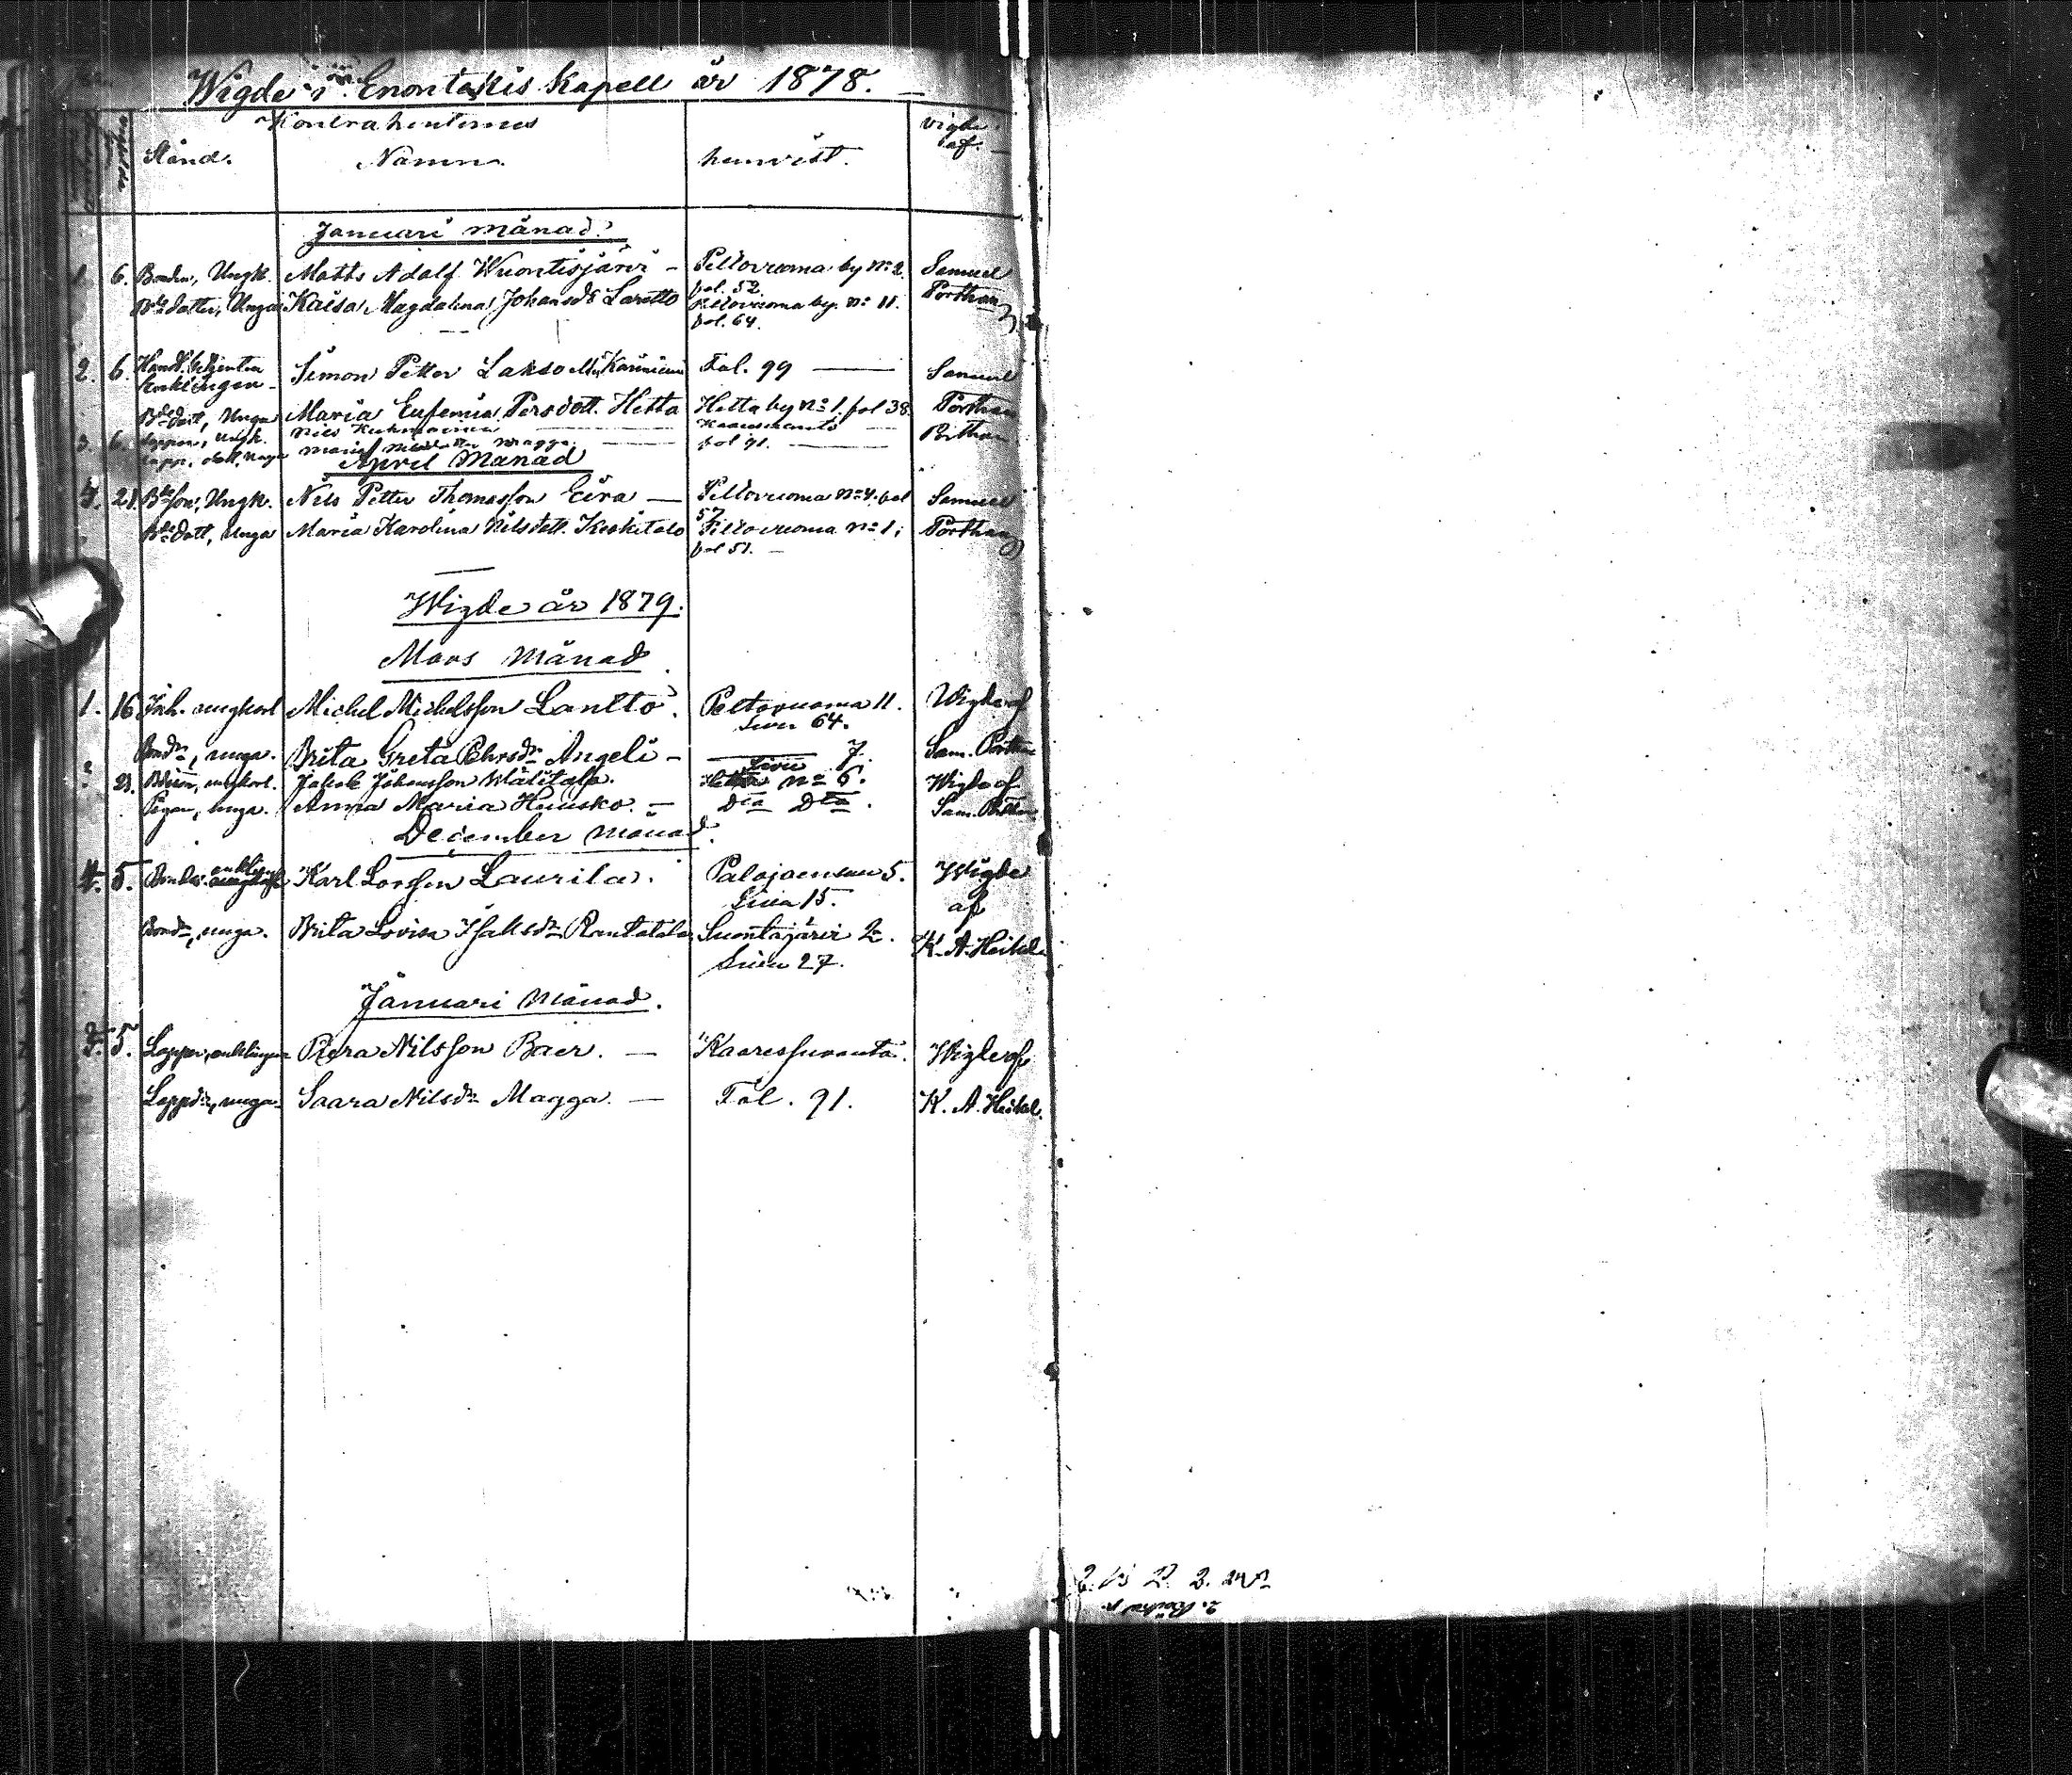 Wigde i Enontekis Kapell år 1878.
Kontrahenternes
Stånd. Namn. hemvist. vigde af.
Januari månad.
1. 6. Bonden, Ungk. Matts Adolf Wuontisjärvi – Peltovuoma by No 2. Samuel
fol. 52.
Bde dotter, Unga Kaisa Magdalena Johansdr Lantto Peltovuoma by. No 11. Porthan
fol. 64.
2. 6. Simon Petter Lakso Fol. 99 Samuel
Enklingen
Bdedott, Unga Maria Eufemia Persdott. Hetta Hetta by No 1. fol 38. Porthan
3. 6. Lappen, Ungk. Nils Porthan
Lapp. dott, Unga Maria Magga fol 91.
April Månad
4. 21. Bdeson, Ungk. Nils Petter Thomasson Eira — Peltovuoma No 4. fol Samuel
57
Bdedott, Unga Maria Karolina Nilsdott. Keskitalo Peltovuoma No 1; Porthan
fol 51. –
Wigde år 1879.
Mars Månad
1. 16 Inh. ungkarl Michel Michelsson Lantto. Peltovuoma 11. Wigde af
Sivu 64.
Bondr, unga. Brita Greta Pehrsdr Angeli – 7. Sam. Porthan
Sivu
2. 21. ungkarl. Jakob Johansson Wälitalo. Hetta No 6. Wigde af
Pigan, unga. Anna Maria Huusko. – Dto Dto. Sam. Porthan
December månad.
4. 5. Bonden enklingen Karl Larsson Laurila. Palojoensuu 5. Wigde
Sivu 15. af
Bondr, unga. Brita Lovisa Isaksdr Rantatalo Suontajärvi 2. K. A. Heikel
Sivu 27.
Januari Månad.
3. 5. Lappen, enklingen Piera Nilsson Baer. — Kaaressuvanto. Wigde af
Lappdr, unga Saara Nilsdr Magga. — Fol. 91. K. A. Heikel.